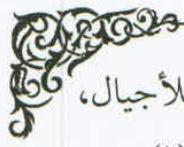 للأجيال،